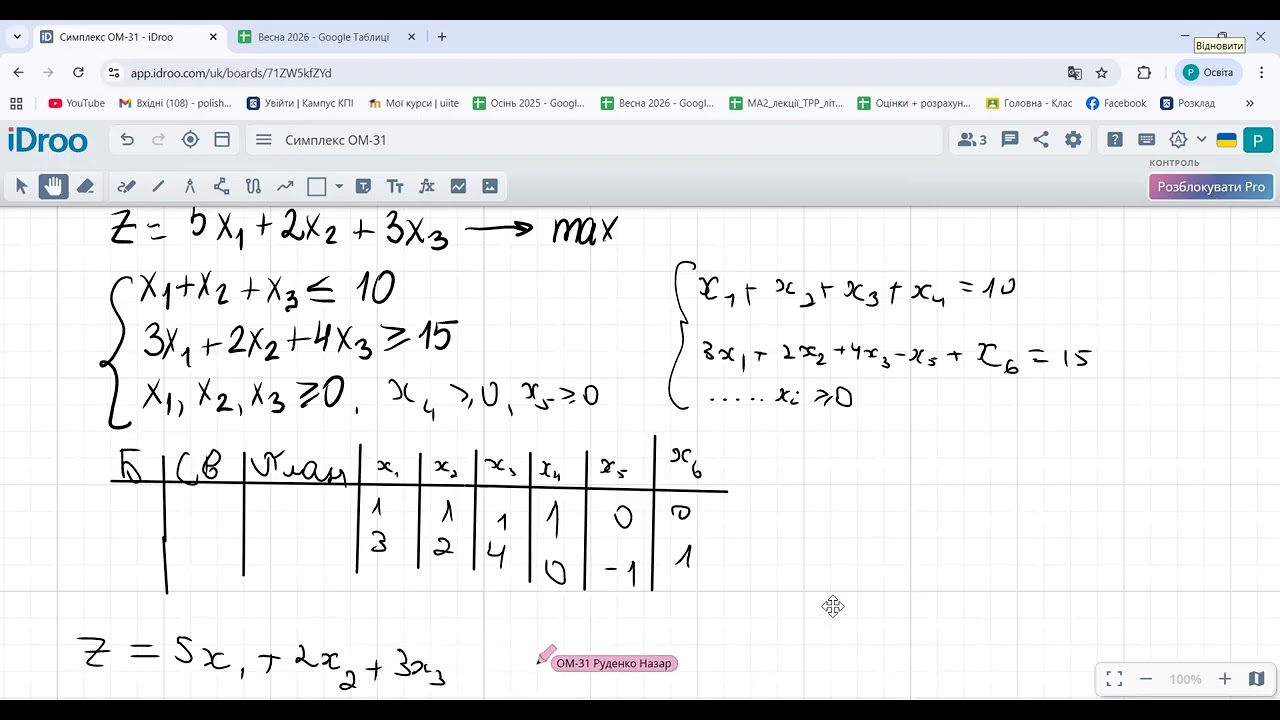 Симплекс ОМ-31 - iDroo
Весна 2026 - Google Таблиці
Відновити
app.idroo.com/uk/boards/71ZW5kfZYd
Освіта
YouTube
Вхідні (108) - polish...
Увійти | Кампус КПІ
Мої курси | uiite
Осінь 2025 - Googl...
Весна 2026 - Googl...
МА2_лекції_ТРР_літ...
Оцінки + розрахун...
Головна - Клас
Facebook
Розклад
iDroo
Симплекс ОМ-31
3
P
КОНТРОЛЬ
Розблокувати Pro
Z = 5x₁ + 2x₂ + 3x₃ → max
x₁ + x₂ + x₃ ≤ 10
3x₁ + 2x₂ + 4x₃ ≥ 15
x₁, x₂, x₃ ≥ 0, x₄ ≥ 0, x₅ ≥ 0
x₁ + x₂ + x₃ + x₄ = 10
3x₁ + 2x₂ + 4x₃ - x₅ + x₆ = 15
..... xᵢ ≥ 0
Б СВ План x₁ x₂ x₃ x₄ x₅ x₆
1 1 1 1 0 0
3 2 4 0 -1 1
Z = 5x₁ + 2x₂ + 3x₃
ОМ-31 Руденко Назар
100%